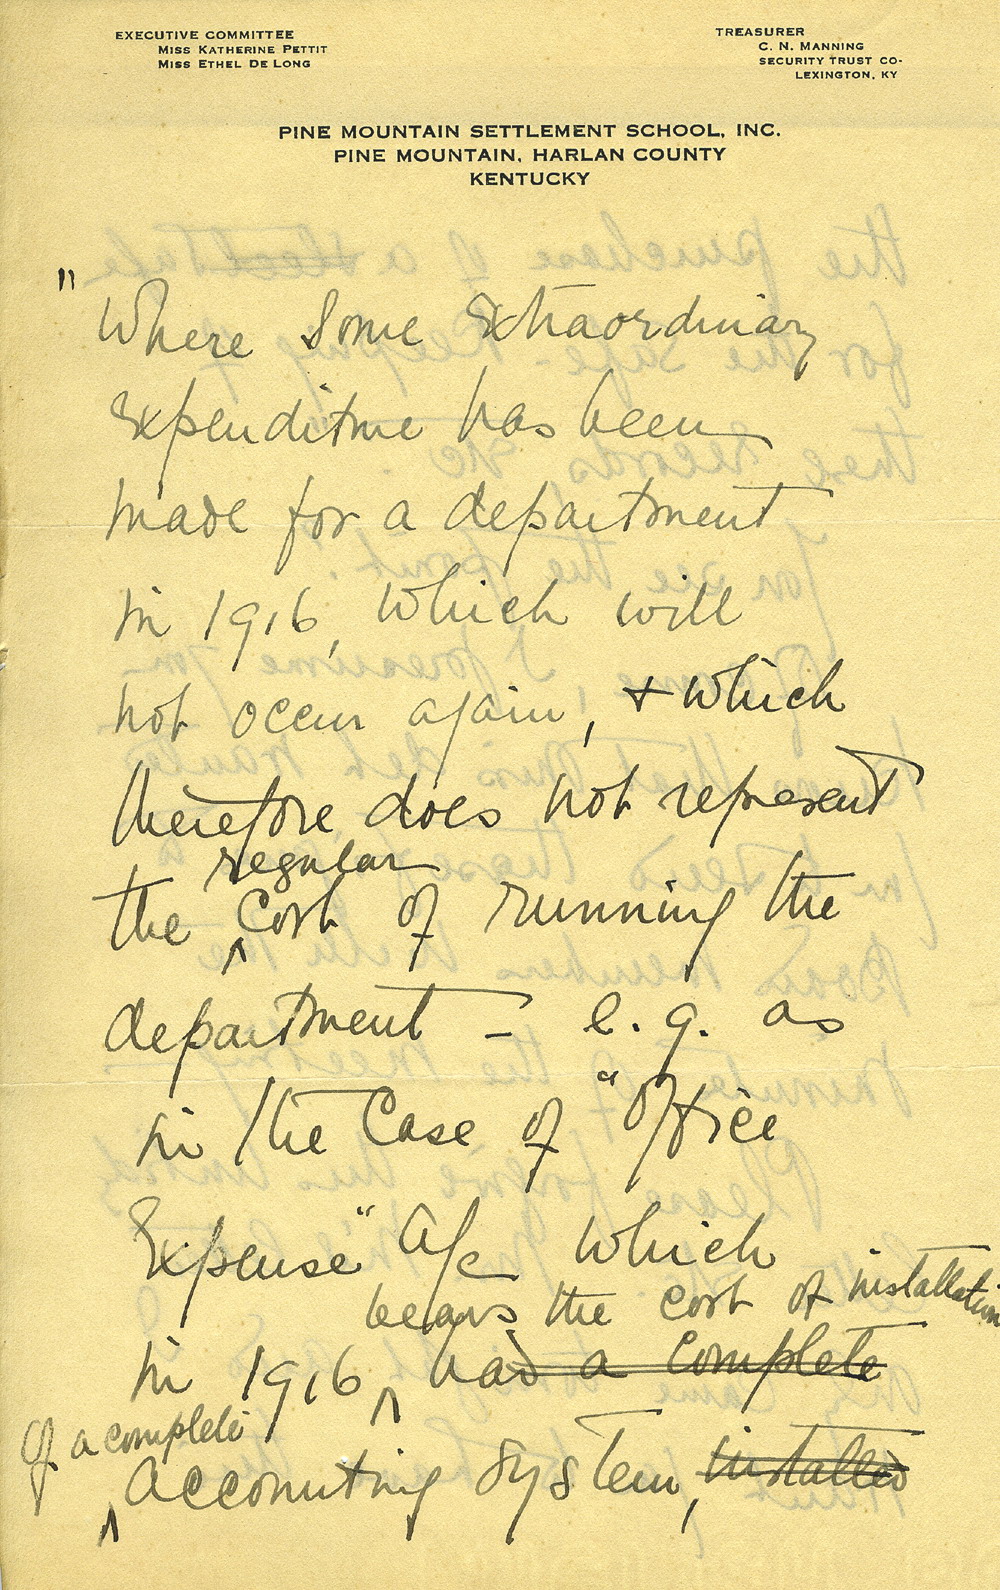 EXECUTIVE COMMITTEE
MISS KATHERINE PETTIT
MISS ETHEL DE LONG
TREASURER
C. N. MANNING
SECURITY TRUST CO-
LEXINGTON, KY
PINE MOUNTAIN SETTLEMENT SCHOOL, INC.
PINE MOUNTAIN, HARLAN COUNTY
KENTUCKY
"Where some extraordinary
expenditure has been
made for a department
in 1916, which will
not occur again, + which
therefore does not represent
regular
the ^ cost of running the
department – e.g. as
in the case of "Office
Expense" a/c which
bears the cost of installation
in 1916 ^ had a complete
of a complete
^ accounting system, installed